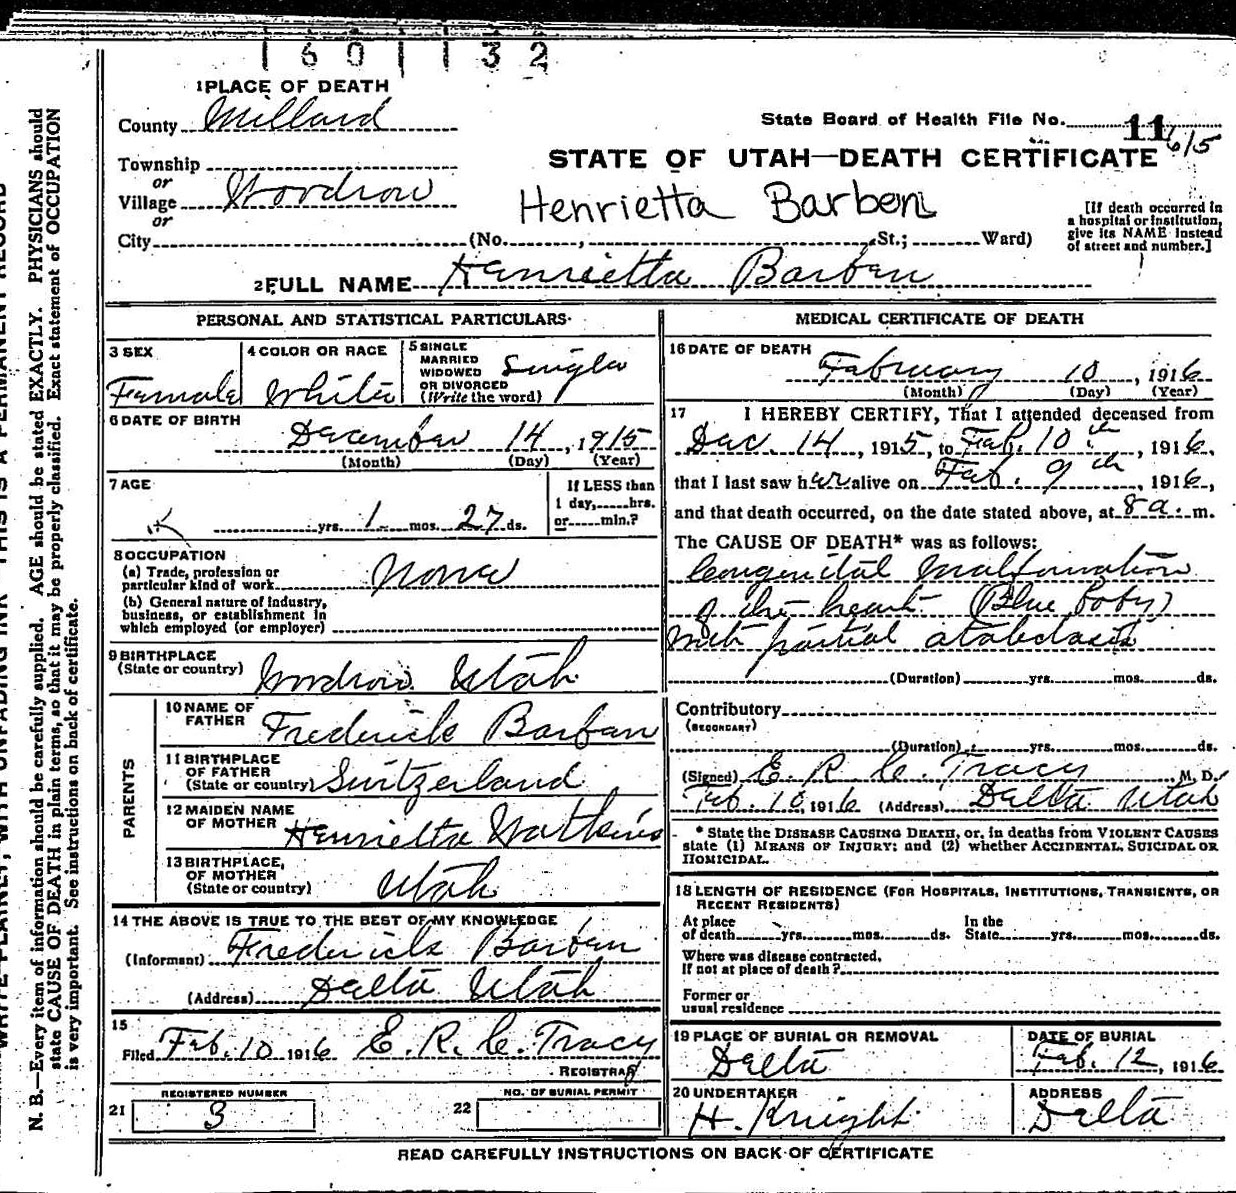 160 1132
1 PLACE OF DEATH
County Millard
State Board of Health File No. 11 615
STATE OF UTAH—DEATH CERTIFICATE
Township
or
Village Woodrow
or
Henrietta Barben
[If death occurred in
a hospital or institution,
give its NAME instead
of street and number.]
City (No. , St.; Ward)
2 FULL NAME Henrietta Barben
PERSONAL AND STATISTICAL PARTICULARS
3 SEX
Female
4 COLOR OR RACE
White
5 SINGLE
MARRIED
WIDOWED
OR DIVORCED
(Write the word)
Single
6 DATE OF BIRTH
December 14, 1915
(Month) (Day) (Year)
7 AGE
yrs. 1 mos. 27 ds.
If LESS than
1 day, hrs.
or min.?
8 OCCUPATION
(a) Trade, profession or
particular kind of work None
(b) General nature of industry,
business, or establishment in
which employed (or employer)
9 BIRTHPLACE
(State or country) Woodrow Utah
PARENTS
10 NAME OF
FATHER Frederick Barben
11 BIRTHPLACE
OF FATHER
(State or country) Switzerland
12 MAIDEN NAME
OF MOTHER Henrietta Watkins
13 BIRTHPLACE,
OF MOTHER
(State or country) Utah
14 THE ABOVE IS TRUE TO THE BEST OF MY KNOWLEDGE
(Informant) Frederick Barben
(Address) Delta Utah
15
Filed Feb. 10 1916 E. R. C. Tracy
REGISTRAR
REGISTERED NUMBER
21 3
NO. OF BURIAL PERMIT
22
MEDICAL CERTIFICATE OF DEATH
16 DATE OF DEATH
February 10, 1916
(Month) (Day) (Year)
17 I HEREBY CERTIFY, That I attended deceased from
Dec. 14, 1915, to Feb. 10th, 1916,
that I last saw her alive on Feb. 9th, 1916,
and that death occurred, on the date stated above, at 8 a. m.
The CAUSE OF DEATH* was as follows:
Congenital malformation
of the heart (Blue baby)
with partial
(Duration) yrs. mos. ds.
Contributory
(SECONDARY)
(Duration) yrs. mos. ds.
(Signed) E. R. C. Tracy M. D.
Feb. 10, 1916 (Address) Delta Utah
* State the DISEASE CAUSING DEATH, or, in deaths from VIOLENT CAUSES
state (1) MEANS OF INJURY; and (2) whether ACCIDENTAL, SUICIDAL OR
HOMICIDAL.
18 LENGTH OF RESIDENCE (FOR HOSPITALS, INSTITUTIONS, TRANSIENTS, OR
RECENT RESIDENTS)
At place
of death yrs. mos. ds.
In the
State yrs. mos. ds.
Where was disease contracted,
If not at place of death?
Former or
usual residence
19 PLACE OF BURIAL OR REMOVAL
Delta
DATE OF BURIAL
Feb. 12, 1916
20 UNDERTAKER
H. Knight
ADDRESS
Delta
READ CAREFULLY INSTRUCTIONS ON BACK OF CERTIFICATE
WRITE PLAINLY, WITH UNFADING INK—THIS IS A PERMANENT RECORD
N. B.—Every item of information should be carefully supplied. AGE should be stated EXACTLY. PHYSICIANS should
state CAUSE OF DEATH in plain terms, so that it may be properly classified. Exact statement of OCCUPATION
is very important. See instructions on back of certificate.